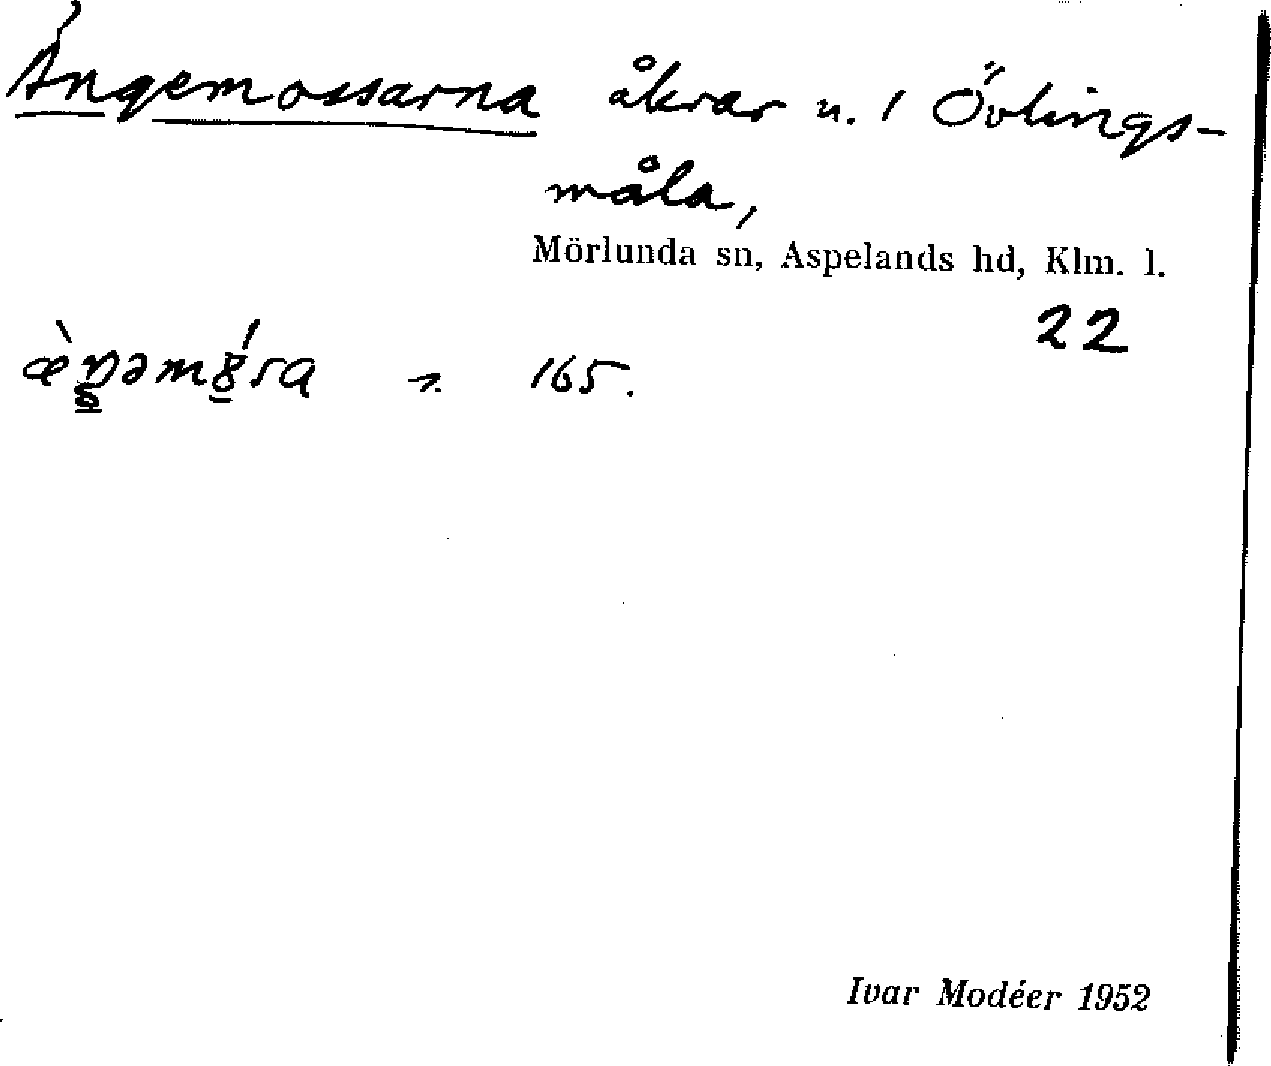 Ängemossarna åkrar u. / Övlings-
måla,
Mörlunda sn, Aspelands hd, Klm. l.
22
165.
Ivar Modéer 1952